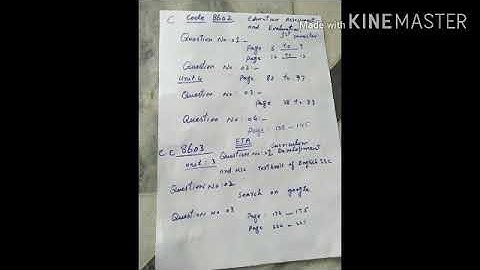 Made with KINEMASTER
C Code 8602 Education Assessment
and Evaluation
1st semester
Question No. 01:-
Page 6 to
Page to
Question No 02:-
Unit 4 Page 80 to 97
Question No. 03:-
Page to
Question No: 04:-
Page: 138 - 145
C C 8603 ETA Curriculum
Unit: 3 Question No: 01 Development
and Textbook of English SSC
Question No 02
Search on google
Question No 03 Page: - 175
Page